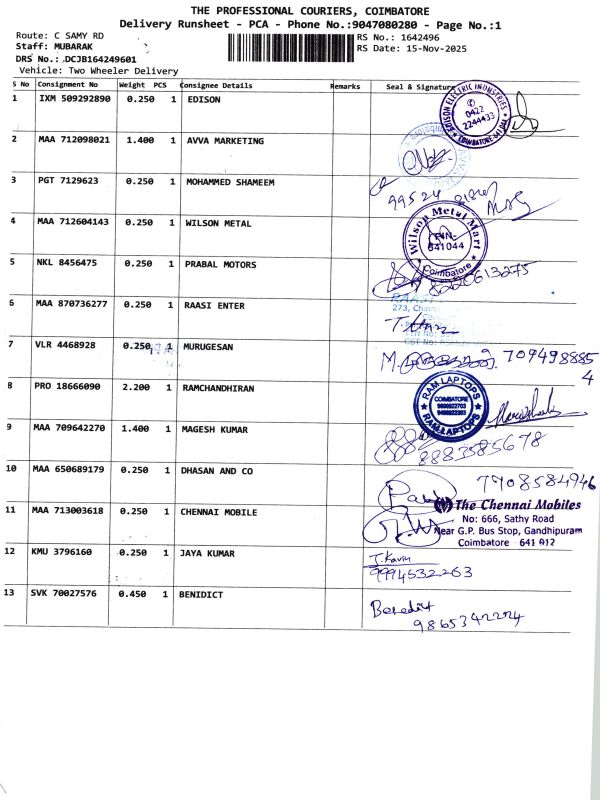 THE PROFESSIONAL COURIERS, COIMBATORE
Delivery Runsheet - PCA - Phone No.:9047080280 - Page No.:1
Route: C SAMY RD
RS No.: 1642496
Staff: MUBARAK
RS Date: 15-Nov-2025
DRS No.: DCJB164249601
Vehicle: Two Wheeler Delivery
S No Consignment No Weight PCS Consignee Details Remarks Seal & Signature
1 IXM 509292890 0.250 1 EDISON
EDISON ELECTRIC INDUSTRIES
0422
2244433
2 MAA 712098021 1.400 1 AVVA MARKETING
3 PGT 7129623 0.250 1 MOHAMMED SHAMEEM
99524
4 MAA 712604143 0.250 1 WILSON METAL
Wilson Metal Mart
PIN-
641044
Coimbatore
5 NKL 8456475 0.250 1 PRABAL MOTORS
6 MAA 870736277 0.250 1 RAASI ENTER
RAASI
7 VLR 4468928 0.250 1 MURUGESAN
7094988854
8 PRO 18666090 2.200 1 RAMCHANDHIRAN
RAM LAPTOPS
COIMBATORE
RAM LAPTOPS
9 MAA 709642270 1.400 1 MAGESH KUMAR
8883585678
10 MAA 650689179 0.250 1 DHASAN AND CO
7908584946
11 MAA 713003618 0.250 1 CHENNAI MOBILE
The Chennai Mobiles
No: 666, Sathy Road
Near G.P. Bus Stop, Gandhipuram
Coimbatore - 641 012
12 KMU 3796160 0.250 1 JAYA KUMAR
T.Kavin
9994532263
13 SVK 70027576 0.450 1 BENIDICT
Benedict
9865342224